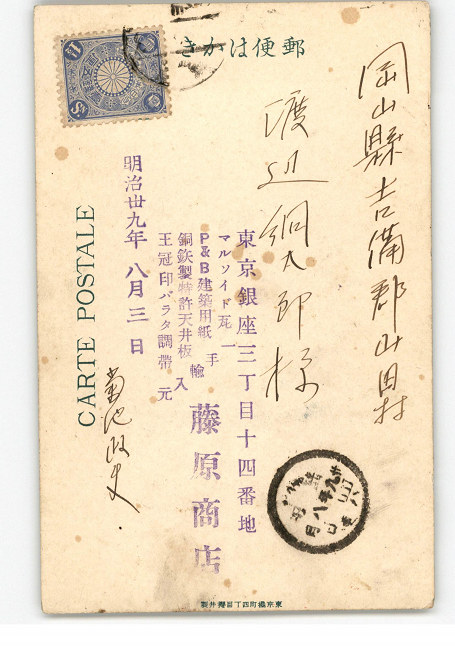 郵便はかき
岡山縣吉備郡山田村
渡辺綱太郎様
東京銀座三丁目十四番地
マルソイド瓦一手輸入元
P&B建築用紙
銅鉄製特許天井板
王冠印バラタ調帶
藤原商店
明治卅九年八月三日
菊池政吏
CARTE POSTALE